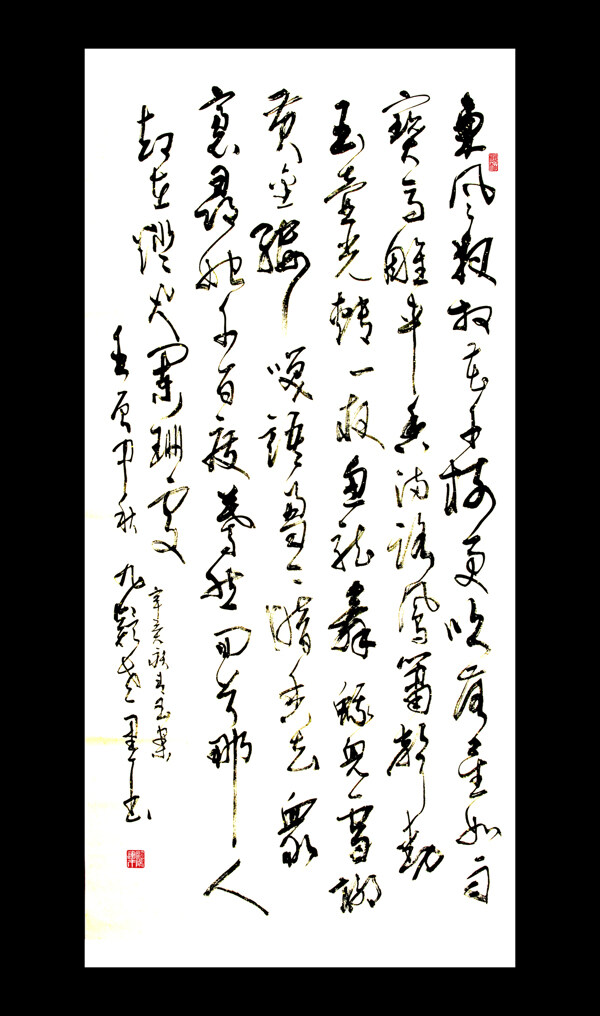 東風夜放花千樹更吹落星如雨
寶馬雕車香滿路鳳簫聲動
玉壺光轉一夜魚龍舞蛾兒雪柳
黃金縷笑語盈々暗香去眾
裏尋他千百度驀然回首那人
却在燈火闌珊處
辛棄疾青玉案
秋九嶷書